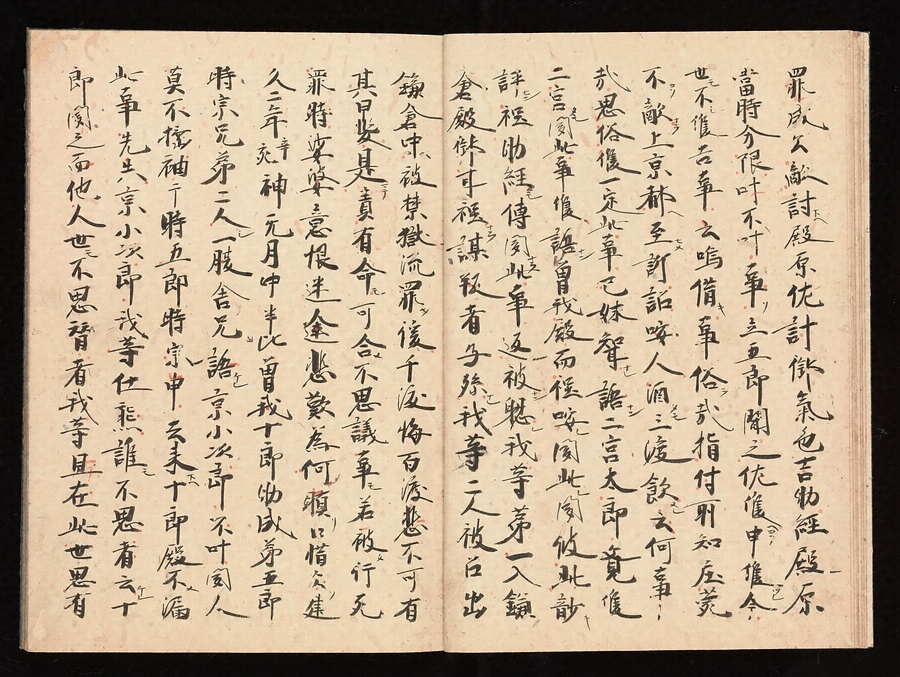 罪成公敵討殿原佐計御氣色吉助經殿原
當時分限叶不叶事云五郎聞之佐隻申隻今
世不隻吉事云嗚借事俗哉指付所知庄薗
不敵上京都至訴詔咹人酒三渡飲云何事
哉思俗隻一定此事已妹聟語二宮太郎覓隻
二宮聞此事隻語曽我殿而侄咹聞此聞彼此訬
評祐助經傳聞此事返被聴我等第一入鎌
倉殿御耳祐謀叛者子孫我等二人被召出
鎌倉中被禁獄流罪後千渡悔百渡悲不可有
其曰娑是責有命可合不思議事若被行死
罪時娑婆意恨迷途悲歎為何頓口惜矣建
久二年辛亥神无月中半比曽我十郎助成第五郎
時宗兄弟二人一腹舎兄語京小次郎不叶聞人
莫不擡袖于時五郎時宗申云来十郎殿不漏
此事先生京小次郎我等仕態誰不思者云十
郎聞之而他人世不思脊者我等且在此世思有